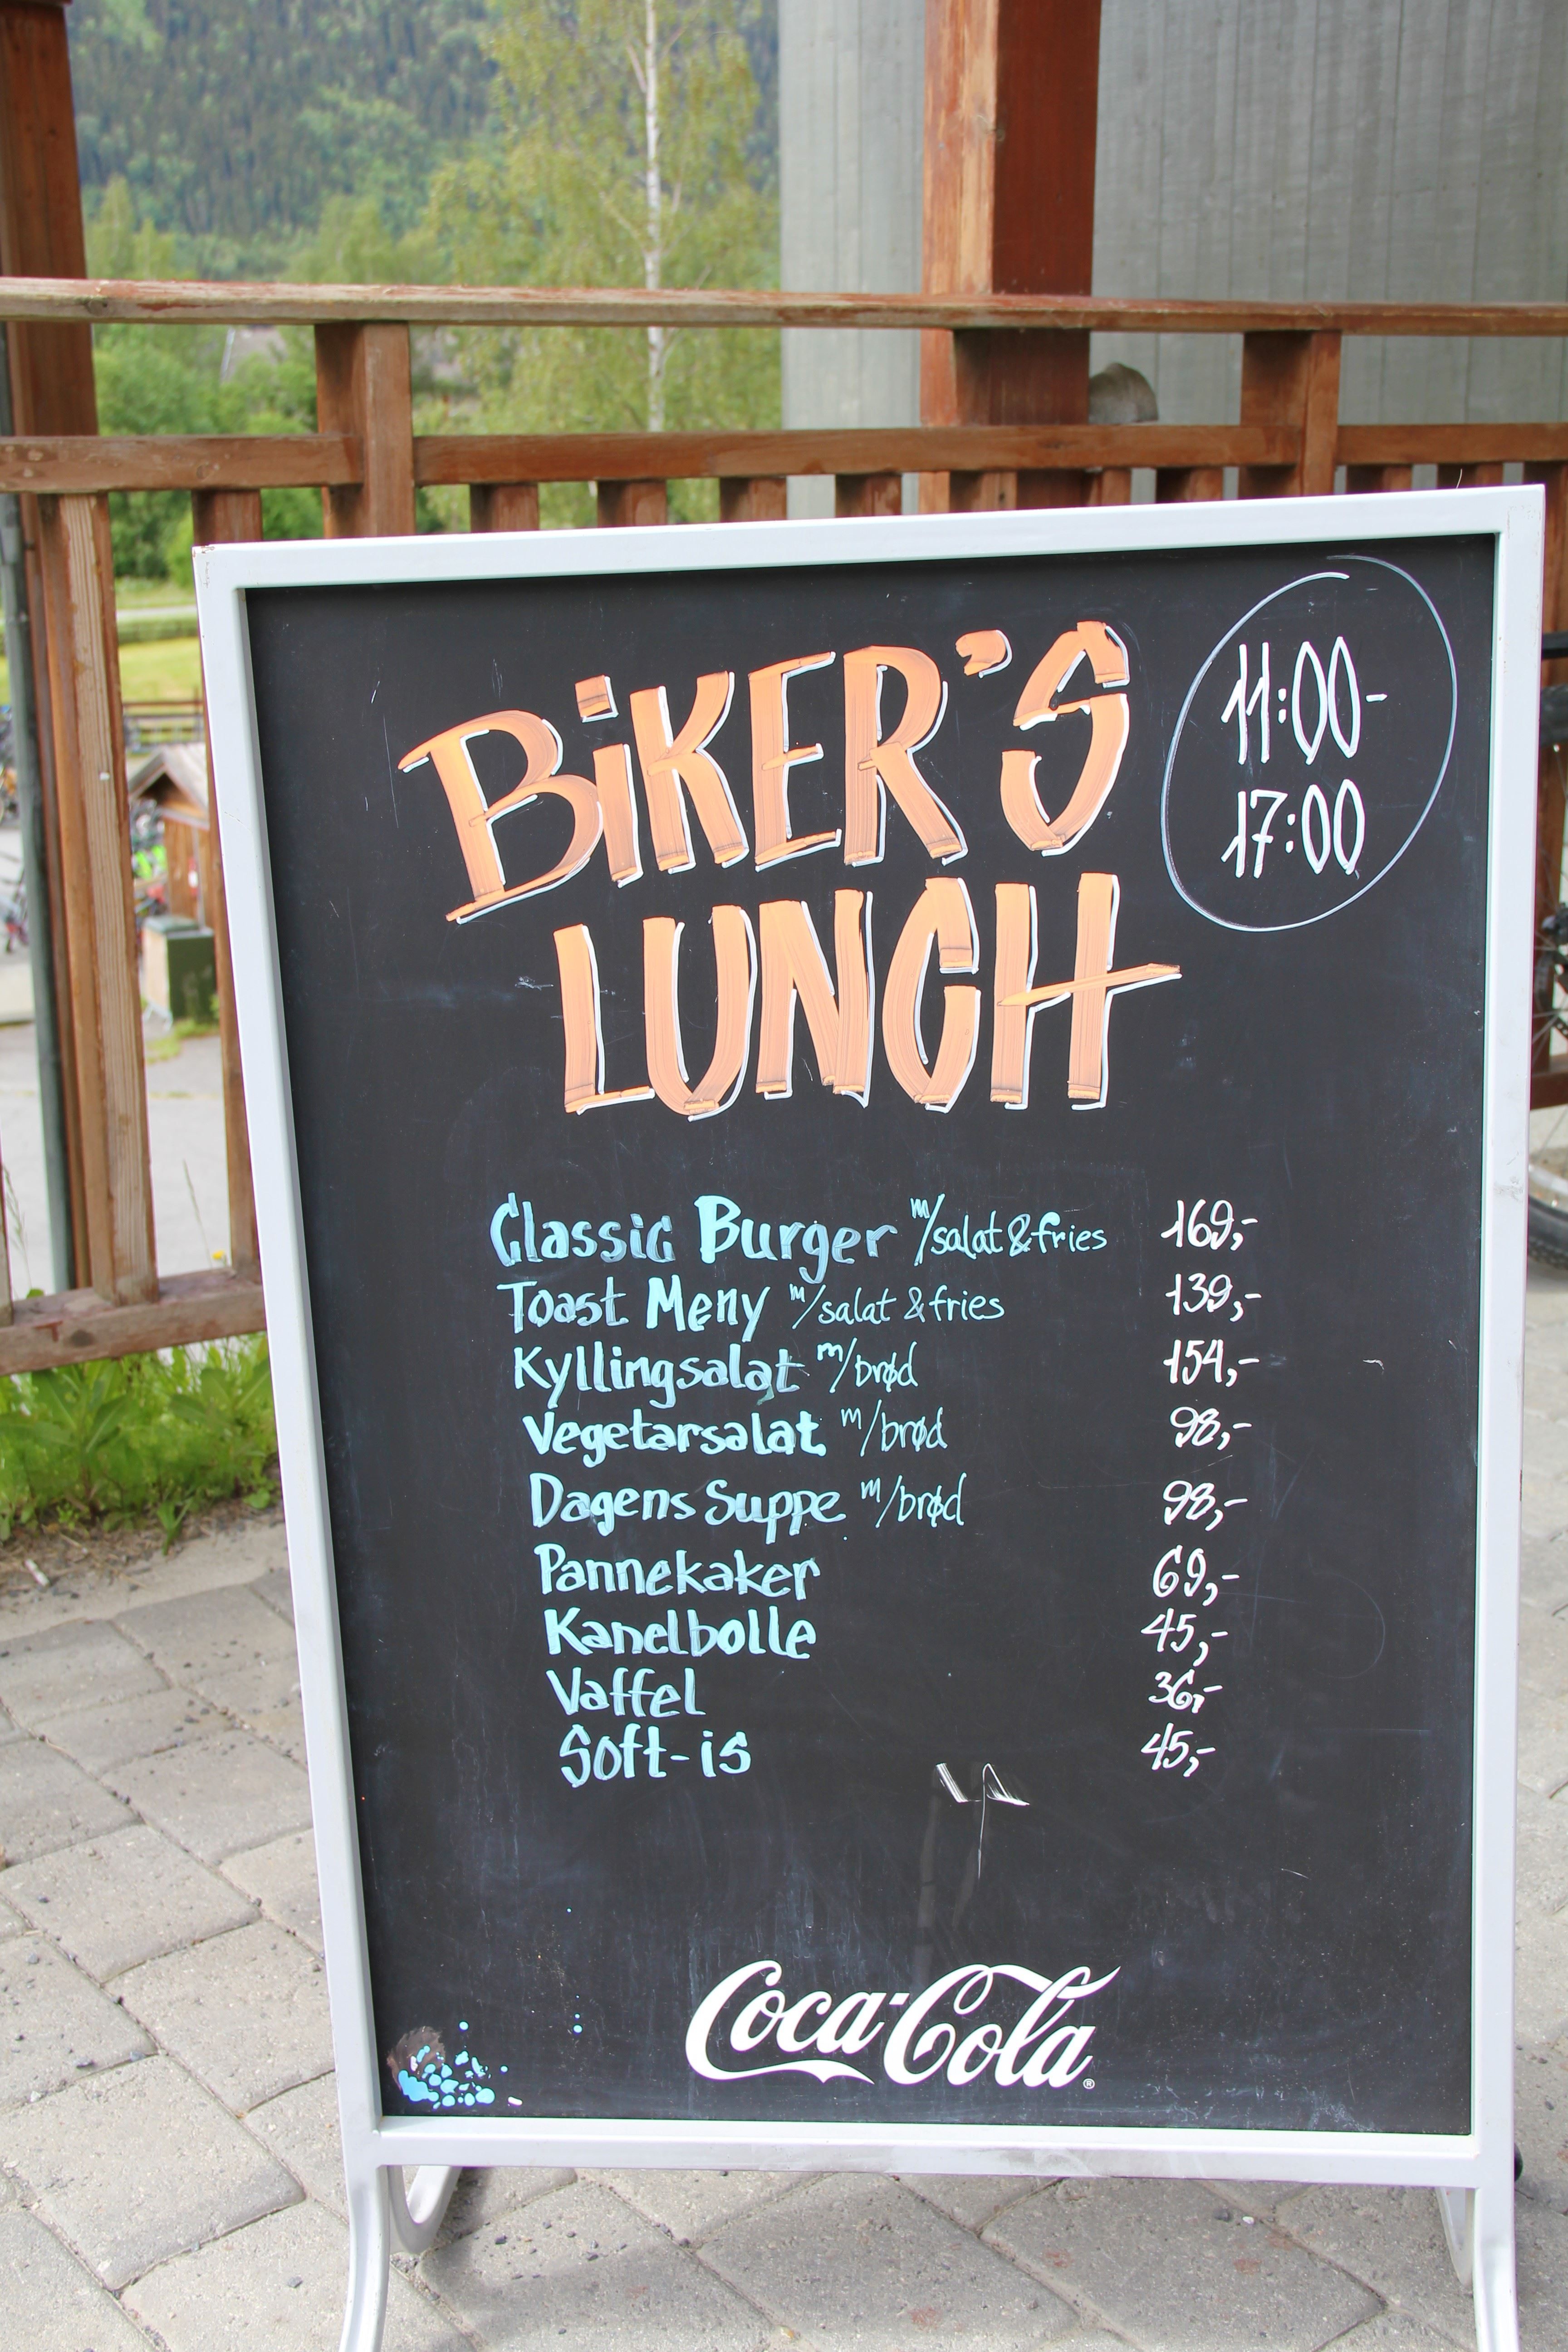 BiKER'S
LUNCH
11:00-
17:00
Classic Burger m/salat & fries 169,-
Toast Meny m/salat & fries 139,-
Kyllingsalat m/brød 154,-
Vegetarsalat m/brød 98,-
Dagens Suppe m/brød 98,-
Pannekaker 69,-
Kanelbolle 45,-
Vaffel 36,-
Soft-is 45,-
Coca-Cola®